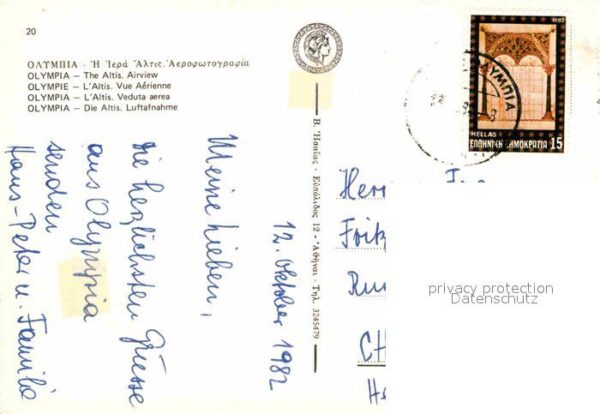 20
ΟΛΥΜΠΙΑ - Ἡ Ἱερά Ἄλτις. Ἀεροφωτογραφία
OLYMPIA — The Altis. Airview
OLYMPIE — L'Altis. Vue Aérienne
OLYMPIA — L'Altis. Veduta aerea
OLYMPIA — Die Altis. Luftafnahme
12. Oktober 1982
Meine Lieben,
die herzlichsten Grüsse
aus Olympia
senden
Hans-Peter u. Familie
Εὐπόλιδος 12 - Ἀθῆναι - Τηλ. 3245479
1982
ΟΛΥΜΠΙΑ
HELLAS
ΕΛΛΗΝΙΚΗ ΔΗΜΟΚΡΑΤΙΑ 15
Fritz
CH
privacy protection
Datenschutz